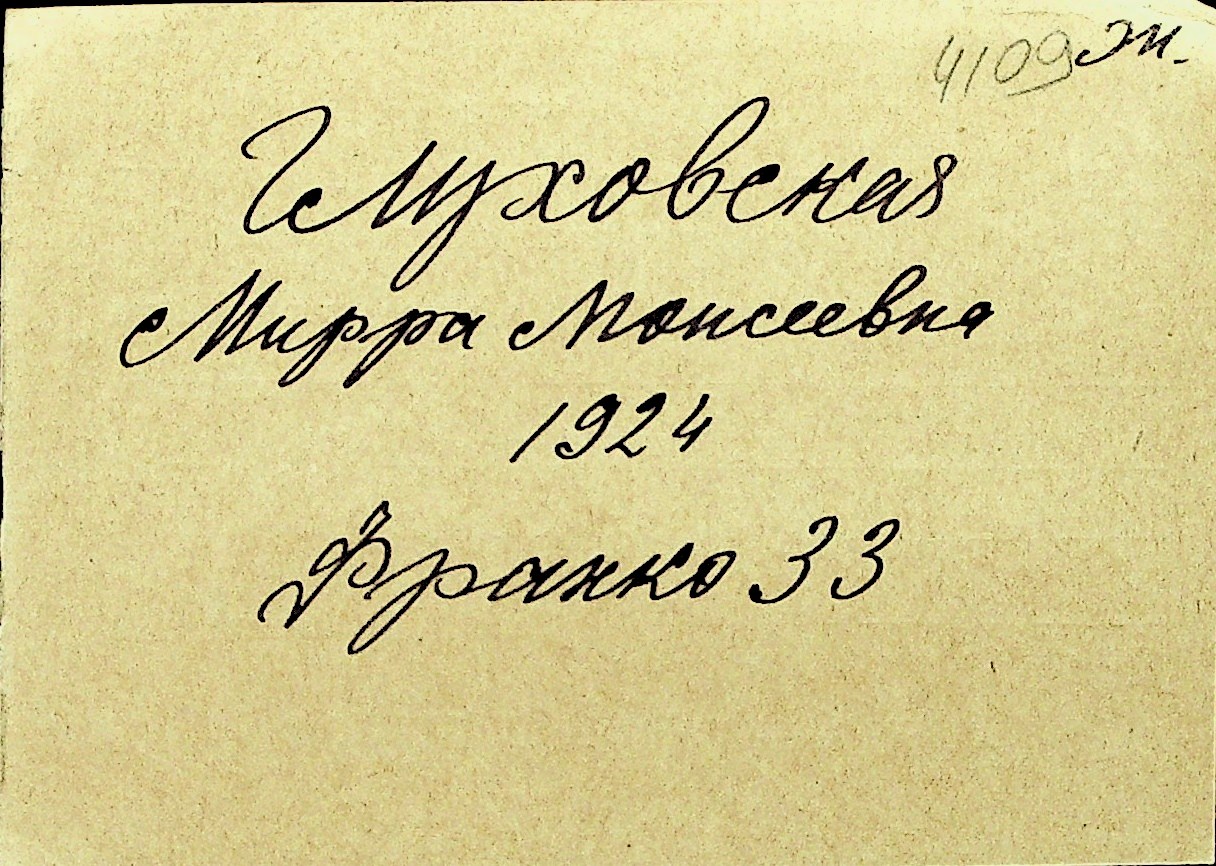 4109 эк.
Глуховская
Мирра Моисеевна
1924
Франко 33